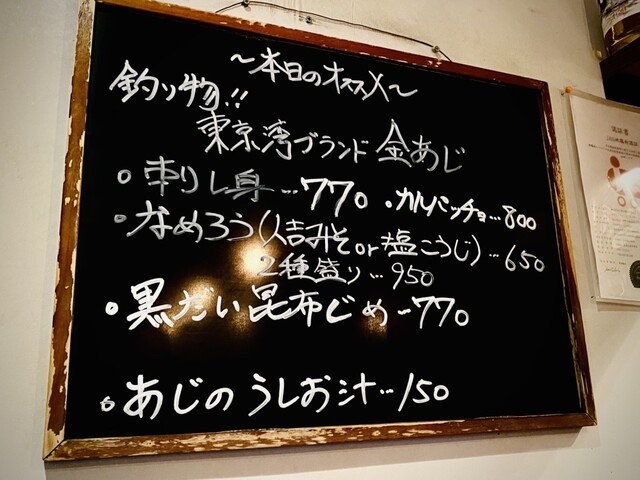 〜本日のオススメ〜
釣り物!!
東京湾ブランド 金あじ
・刺し身…770 ・カルパッチョ…800
・なめろう(人吉みそor塩こうじ)…650
2種盛り…950
・黒だい昆布じめ…770
・あじのうしお汁…150